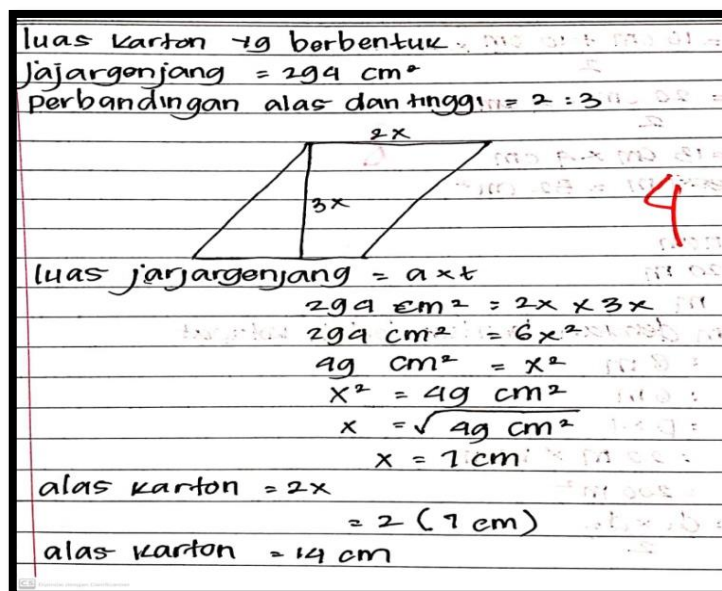 luas karton yg berbentuk
jajargenjang = 294 cm²
perbandingan alas dan tinggi = 2 : 3
2x
3x
4
luas jarjargenjang = a x t
294 cm² = 2x x 3x
294 cm² = 6x²
49 cm² = x²
x² = 49 cm²
x = √49 cm²
x = 7 cm
alas karton = 2x
= 2 (7 cm)
alas karton = 14 cm
CS